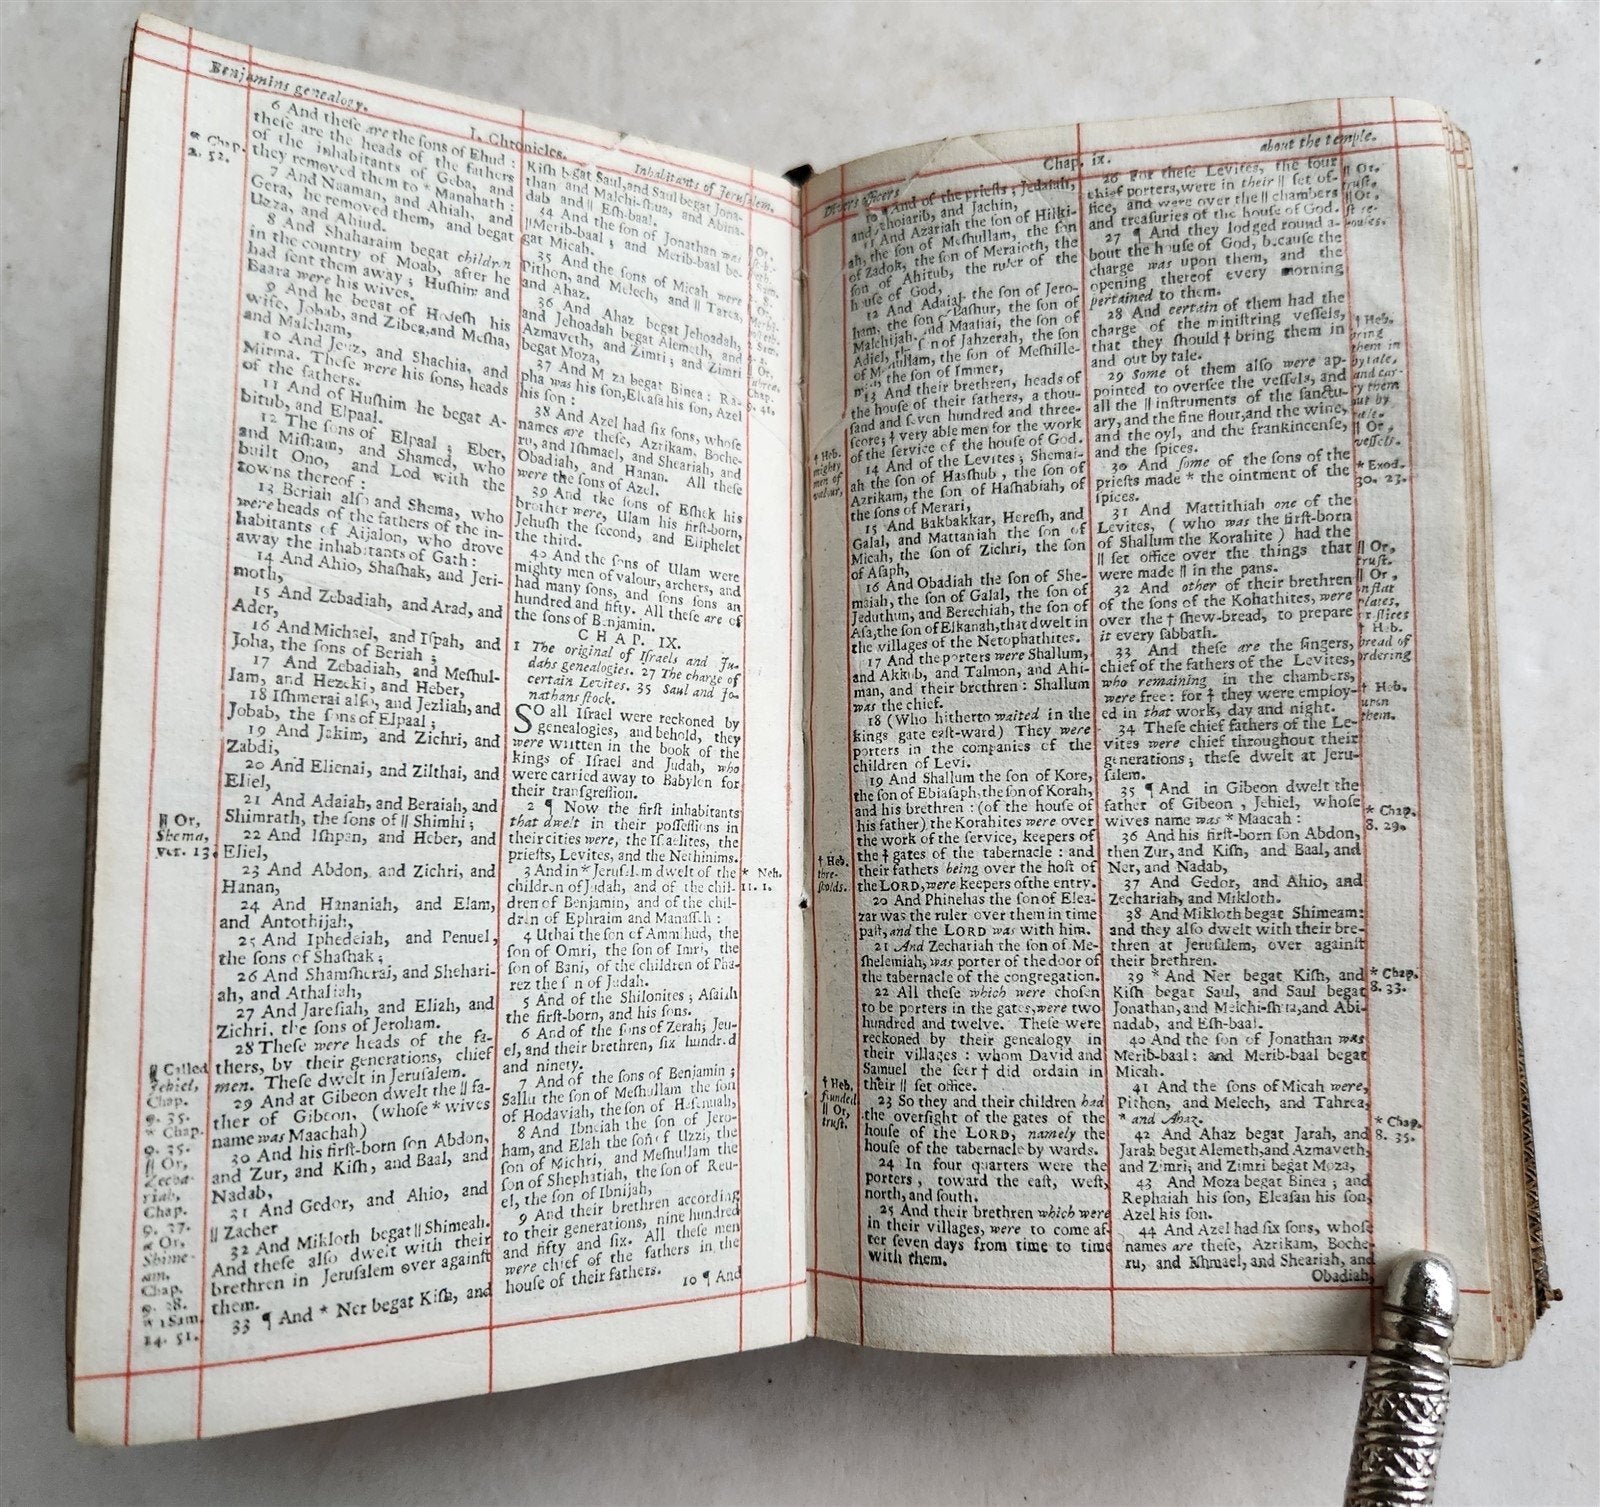 Benjamins genealogy.
I. Chronicles.
Inhabitants of Jerusalem.
* Chap.
2. 52.
6 And theſe are the ſons of Ehud :
theſe are the heads of the fathers
of the inhabitants of Geba, and
they removed them to * Manahath :
7 And Naaman, and Ahiah, and
Gera, he removed them, and begat
Uzza, and Ahiud.
8 And Shaharaim begat children
in the country of Moab, after he
had ſent them away ; Huſhim and
Baara were his wives.
9 And he begat of Hodeſh his
wife, Jobab, and Zibea, and Meſha,
and Malcham,
10 And Jeuz, and Shachia, and
Mirma. Theſe were his ſons, heads
of the fathers.
11 And of Huſhim he begat A-
bitub, and Elpaal.
12 The ſons of Elpaal ; Eber,
and Miſham, and Shamed, who
built Ono, and Lod with the
towns thereof :
13 Beriah alſo and Shema, who
were heads of the fathers of the in-
habitants of Aijalon, who drove
away the inhabitants of Gath :
14 And Ahio, Shaſhak, and Jeri-
moth,
15 And Zebadiah, and Arad, and
Ader,
16 And Michael, and Iſpah, and
Joha, the ſons of Beriah ;
17 And Zebadiah, and Meſhul-
lam, and Hezeki, and Heber,
18 Iſhmerai alſo, and Jezliah, and
Jobab, the ſons of Elpaal ;
19 And Jakim, and Zichri, and
Zabdi,
20 And Elienai, and Zilthai, and
Eliel,
21 And Adaiah, and Beraiah, and
Shimrath, the ſons of || Shimhi ;
|| Or,
Shema,
ver. 13.
22 And Iſhpan, and Heber, and
Eliel,
23 And Abdon, and Zichri, and
Hanan,
24 And Hananiah, and Elam,
and Antothijah,
25 And Iphedeiah, and Penuel,
the ſons of Shaſhak ;
26 And Shamſherai, and Shehari-
ah, and Athaliah,
27 And Jareſiah, and Eliah, and
Zichri, the ſons of Jeroham.
28 Theſe were heads of the fa-
thers, by their generations, chief
men. Theſe dwelt in Jeruſalem.
29 And at Gibeon dwelt the || fa-
ther of Gibeon, (whoſe * wives
name was Maachah)
30 And his firſt-born ſon Abdon,
and Zur, and Kiſh, and Baal, and
Nadab,
31 And Gedor, and Ahio, and
|| Zacher
32 And Mikloth begat || Shimeah.
And theſe alſo dwelt with their
brethren in Jeruſalem over againſt
them.
33 ¶ And * Ner begat Kiſh, and
|| Called
Jehiel,
Chap.
9. 35.
* Chap.
9. 35.
|| Or,
Zecha-
riah,
Chap.
9. 37.
|| Or,
Shime-
am,
Chap.
9. 38.
* 1 Sam.
14. 51.
Kiſh begat Saul, and Saul begat Jona-
than and Malchi-ſhua, and Abina-
dab and || Eſh-baal.
34 And the ſon of Jonathan was
|| Merib-baal ; and Merib-baal be-
gat Micah.
35 And the ſons of Micah were
Pithon, and Melech, and || Tarea,
and Ahaz.
36 And Ahaz begat Jehoadah,
and Jehoadah begat Alemeth, and
Azmaveth, and Zimri ; and Zimri
begat Moza,
37 And Moza begat Binea : Ra-
pha was his ſon, Eleaſa his ſon, Azel
his ſon :
38 And Azel had ſix ſons, whoſe
names are theſe, Azrikam, Boche-
ru, and Iſhmael, and Sheariah, and
Obadiah, and Hanan. All theſe
were the ſons of Azel.
39 And the ſons of Eſhek his
brother were, Ulam his firſt-born,
Jehuſh the ſecond, and Eliphelet
the third.
40 And the ſons of Ulam were
mighty men of valour, archers, and
had many ſons, and ſons ſons an
hundred and fifty. All theſe are of
the ſons of Benjamin.
CHAP. IX.
1 The original of Iſraels and Ju-
dahs genealogies. 27 The charge of
certain Levites. 35 Saul and Jo-
nathans ſtock.
SO all Iſrael were reckoned by
genealogies, and behold, they
were written in the book of the
kings of Iſrael and Judah, who
were carried away to Babylon for
their tranſgreſſion.
2 ¶ Now the firſt inhabitants
that dwelt in their poſſeſſions in
their cities were, the Iſraelites, the
prieſts, Levites, and the Nethinims.
3 And in * Jeruſalem dwelt of the
children of Judah, and of the chil-
dren of Benjamin, and of the chil-
dren of Ephraim and Manaſſeh :
* Neh.
11. 1.
4 Uthai the ſon of Ammihud, the
ſon of Omri, the ſon of Imri, the
ſon of Bani, of the children of Pha-
rez the ſon of Judah.
5 And of the Shilonites ; Aſaiah
the firſt-born, and his ſons.
6 And of the ſons of Zerah; Jeu-
el, and their brethren, ſix hundred
and ninety.
7 And of the ſons of Benjamin ;
Sallu the ſon of Meſhullam the ſon
of Hodaviah, the ſon of Haſenuah,
8 And Ibneiah the ſon of Jero-
ham, and Elah the ſon of Uzzi, the
ſon of Michri, and Meſhullam the
ſon of Shephatiah, the ſon of Reu-
el, the ſon of Ibnijah,
9 And their brethren according
to their generations, nine hundred
and fifty and ſix. All theſe men
were chief of the fathers in the
houſe of their fathers.
10 ¶ And
Divers officers
Chap. ix.
about the temple.
10 ¶ And of the prieſts ; Jedaiah,
and Jehoiarib, and Jachin,
11 And Azariah the ſon of Hilki-
ah, the ſon of Meſhullam, the ſon
of Zadok, the ſon of Meraioth, the
ſon of Ahitub, the ruler of the
houſe of God,
12 And Adaiah the ſon of Jero-
ham, the ſon of Paſhur, the ſon of
Malchijah, and Maaſiai, the ſon of
Adiel, the ſon of Jahzerah, the ſon
of Meſhullam, the ſon of Meſhille-
the ſon of Immer,
13 And their brethren, heads of
the houſe of their fathers, a thou-
ſand and ſeven hundred and three-
ſcore; † very able men for the work
of the ſervice of the houſe of God.
† Heb.
mighty
men of
valour,
14 And of the Levites ; Shemai-
ah the ſon of Haſhub, the ſon of
Azrikam, the ſon of Haſhabiah, of
the ſons of Merari,
15 And Bakbakkar, Hereſh, and
Galal, and Mattaniah the ſon of
Micah, the ſon of Zichri, the ſon
of Aſaph,
16 And Obadiah the ſon of She-
maiah, the ſon of Galal, the ſon of
Jeduthun, and Berechiah, the ſon of
Aſa, the ſon of Elkanah, that dwelt in
the villages of the Netophathites.
17 And the porters were Shallum,
and Akkub, and Talmon, and Ahi-
man, and their brethren : Shallum
was the chief.
18 (Who hitherto waited in the
kings gate eaſt-ward) They were
porters in the companies of the
children of Levi.
19 And Shallum the ſon of Kore,
the ſon of Ebiaſaph, the ſon of Korah,
and his brethren : (of the houſe of
his father) the Korahites were over
the work of the ſervice, keepers of
the † gates of the tabernacle : and
their fathers being over the hoſt of
the LORD, were keepers of the entry.
† Heb.
thre-
ſholds.
20 And Phinehas the ſon of Elea-
zar was the ruler over them in time
paſt, and the LORD was with him.
21 And Zechariah the ſon of Me-
ſhelemiah, was porter of the door of
the tabernacle of the congregation.
22 All theſe which were choſen
to be porters in the gates, were two
hundred and twelve. Theſe were
reckoned by their genealogy in
their villages : whom David and
Samuel the ſeer † did ordain in
their || ſet office.
† Heb.
founded
|| Or,
truſt.
23 So they and their children had
the overſight of the gates of the
houſe of the LORD, namely the
houſe of the tabernacle by wards.
24 In four quarters were the
porters, toward the eaſt, weſt,
north, and ſouth.
25 And their brethren which were
in their villages, were to come af-
ter ſeven days from time to time
with them.
26 For theſe Levites, the four
chief porters, were in their || ſet of-
fice, and were over the || chambers
and treaſuries of the houſe of God.
|| Or,
truſt.
|| Or,
27 ¶ And they lodged round a-
bout the houſe of God, becauſe the
charge was upon them, and the
opening thereof every morning
pertained to them.
28 And certain of them had the
charge of the miniſtring veſſels,
that they ſhould † bring them in
and out by tale.
† Heb.
bring
them in
by tale,
and car-
ry them
out by
tale.
|| Or,
veſſels.
29 Some of them alſo were ap-
pointed to overſee the veſſels, and
all the || inſtruments of the ſanctu-
ary, and the fine flour, and the wine,
and the oyl, and the frankincenſe,
and the ſpices.
30 And ſome of the ſons of the
prieſts made * the ointment of the
ſpices.
* Exod.
30. 23.
31 And Mattithiah one of the
Levites, ( who was the firſt-born
of Shallum the Korahite ) had the
|| ſet office over the things that
were made || in the pans.
|| Or,
truſt.
|| Or,
on flat
plates,
or ſlices
32 And other of their brethren
of the ſons of the Kohathites, were
over the † ſhew-bread, to prepare
it every ſabbath.
† Heb.
bread of
ordering
33 And theſe are the ſingers,
chief of the fathers of the Levites,
who remaining in the chambers,
were free : for † they were employ-
ed in that work, day and night.
† Heb.
upon
them.
34 Theſe chief fathers of the Le-
vites were chief throughout their
generations ; theſe dwelt at Jeru-
ſalem.
35 ¶ And in Gibeon dwelt the
father of Gibeon , Jehiel, whoſe
wives name was * Maacah :
* Chap.
8. 29.
36 And his firſt-born ſon Abdon,
then Zur, and Kiſh, and Baal, and
Ner, and Nadab,
37 And Gedor, and Ahio, and
Zechariah, and Mikloth.
38 And Mikloth begat Shimeam:
and they alſo dwelt with their bre-
thren at Jeruſalem, over againſt
their brethren.
39 * And Ner begat Kiſh, and
Kiſh begat Saul, and Saul begat
Jonathan, and Malchi-ſhua, and Abi-
nadab, and Eſh-baal.
* Chap.
8. 33.
40 And the ſon of Jonathan was
Merib-baal : and Merib-baal begat
Micah.
41 And the ſons of Micah were,
Pithon, and Melech, and Tahrea,
* and Ahaz.
* Chap.
8. 35.
42 And Ahaz begat Jarah, and
Jarah begat Alemeth, and Azmaveth,
and Zimri; and Zimri begat Moza,
43 And Moza begat Binea ; and
Rephaiah his ſon, Eleaſah his ſon,
Azel his ſon.
44 And Azel had ſix ſons, whoſe
names are theſe, Azrikam, Boche-
ru, and Iſhmael, and Sheariah, and
Obadiah,